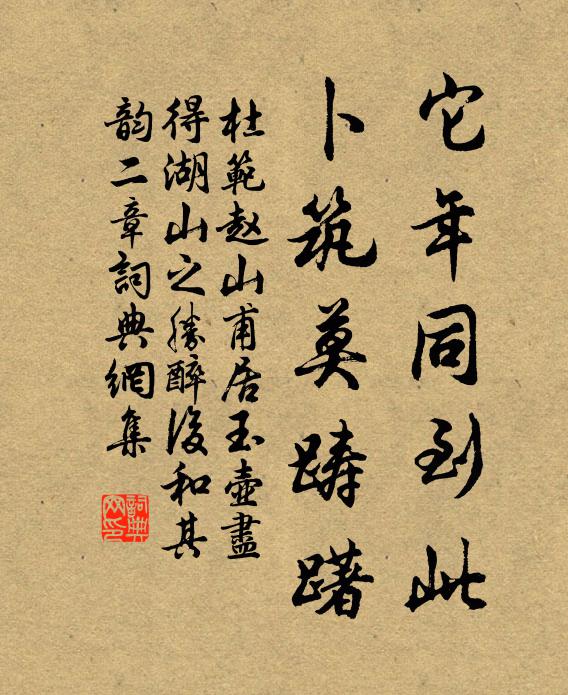 它年同到此
卜筑莫踌躇
杜範赵山甫居玉壺盡
得湖山之勝醉後和其
韵二章詞典網集
詞典
网印